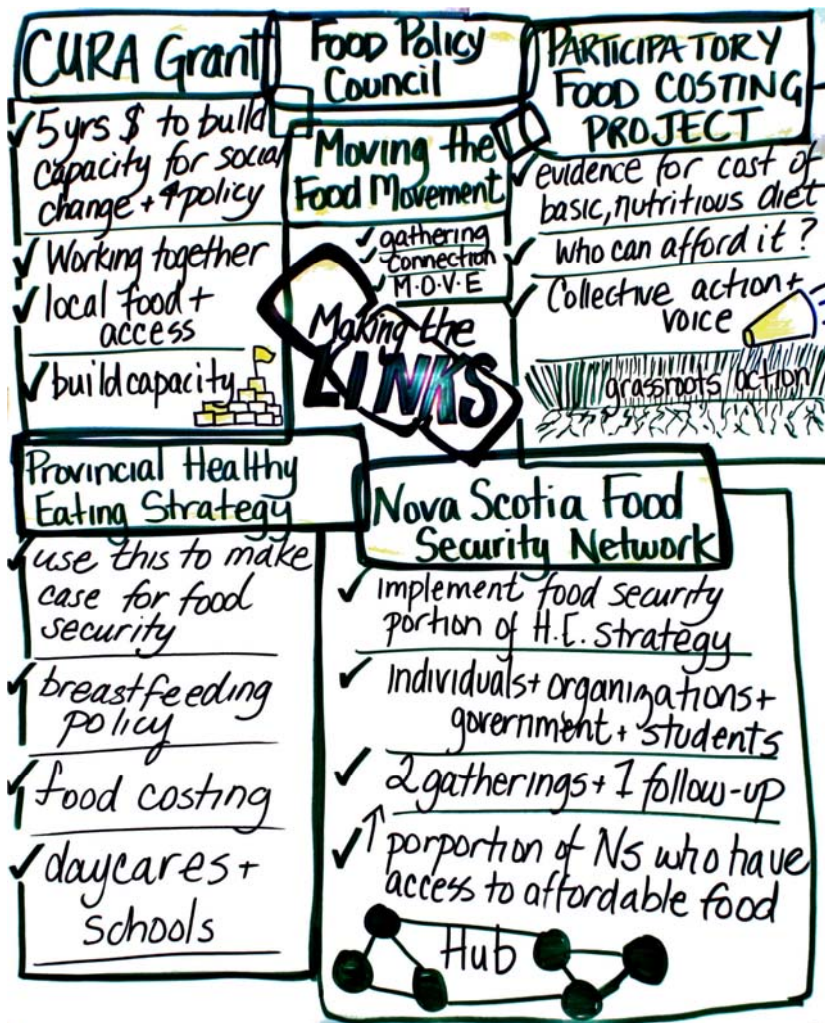 CURA Grant
✓ 5 yrs $ to build
capacity for social
change + ↑ policy
✓ Working together
✓ local food +
access
✓ build capacity
Food Policy
Council
Moving the
Food Movement
✓ gathering
✓ connection
✓ M.O.V.E
Making the
LINKS
PARTICIPATORY
FOOD COSTING
PROJECT
✓ evidence for cost of
basic, nutritious diet
✓ Who can afford it?
✓ Collective action +
voice
grassroots action
Provincial Healthy
Eating Strategy
✓ use this to make
case for food
security
✓ breastfeeding
policy
✓ food costing
✓ daycares +
schools
Nova Scotia Food
Security Network
✓ implement food security
portion of H.E. Strategy
✓ Individuals + organizations +
government + students
✓ 2 gatherings + 1 follow-up
✓ ↑ porportion of NS who have
access to affordable food
Hub